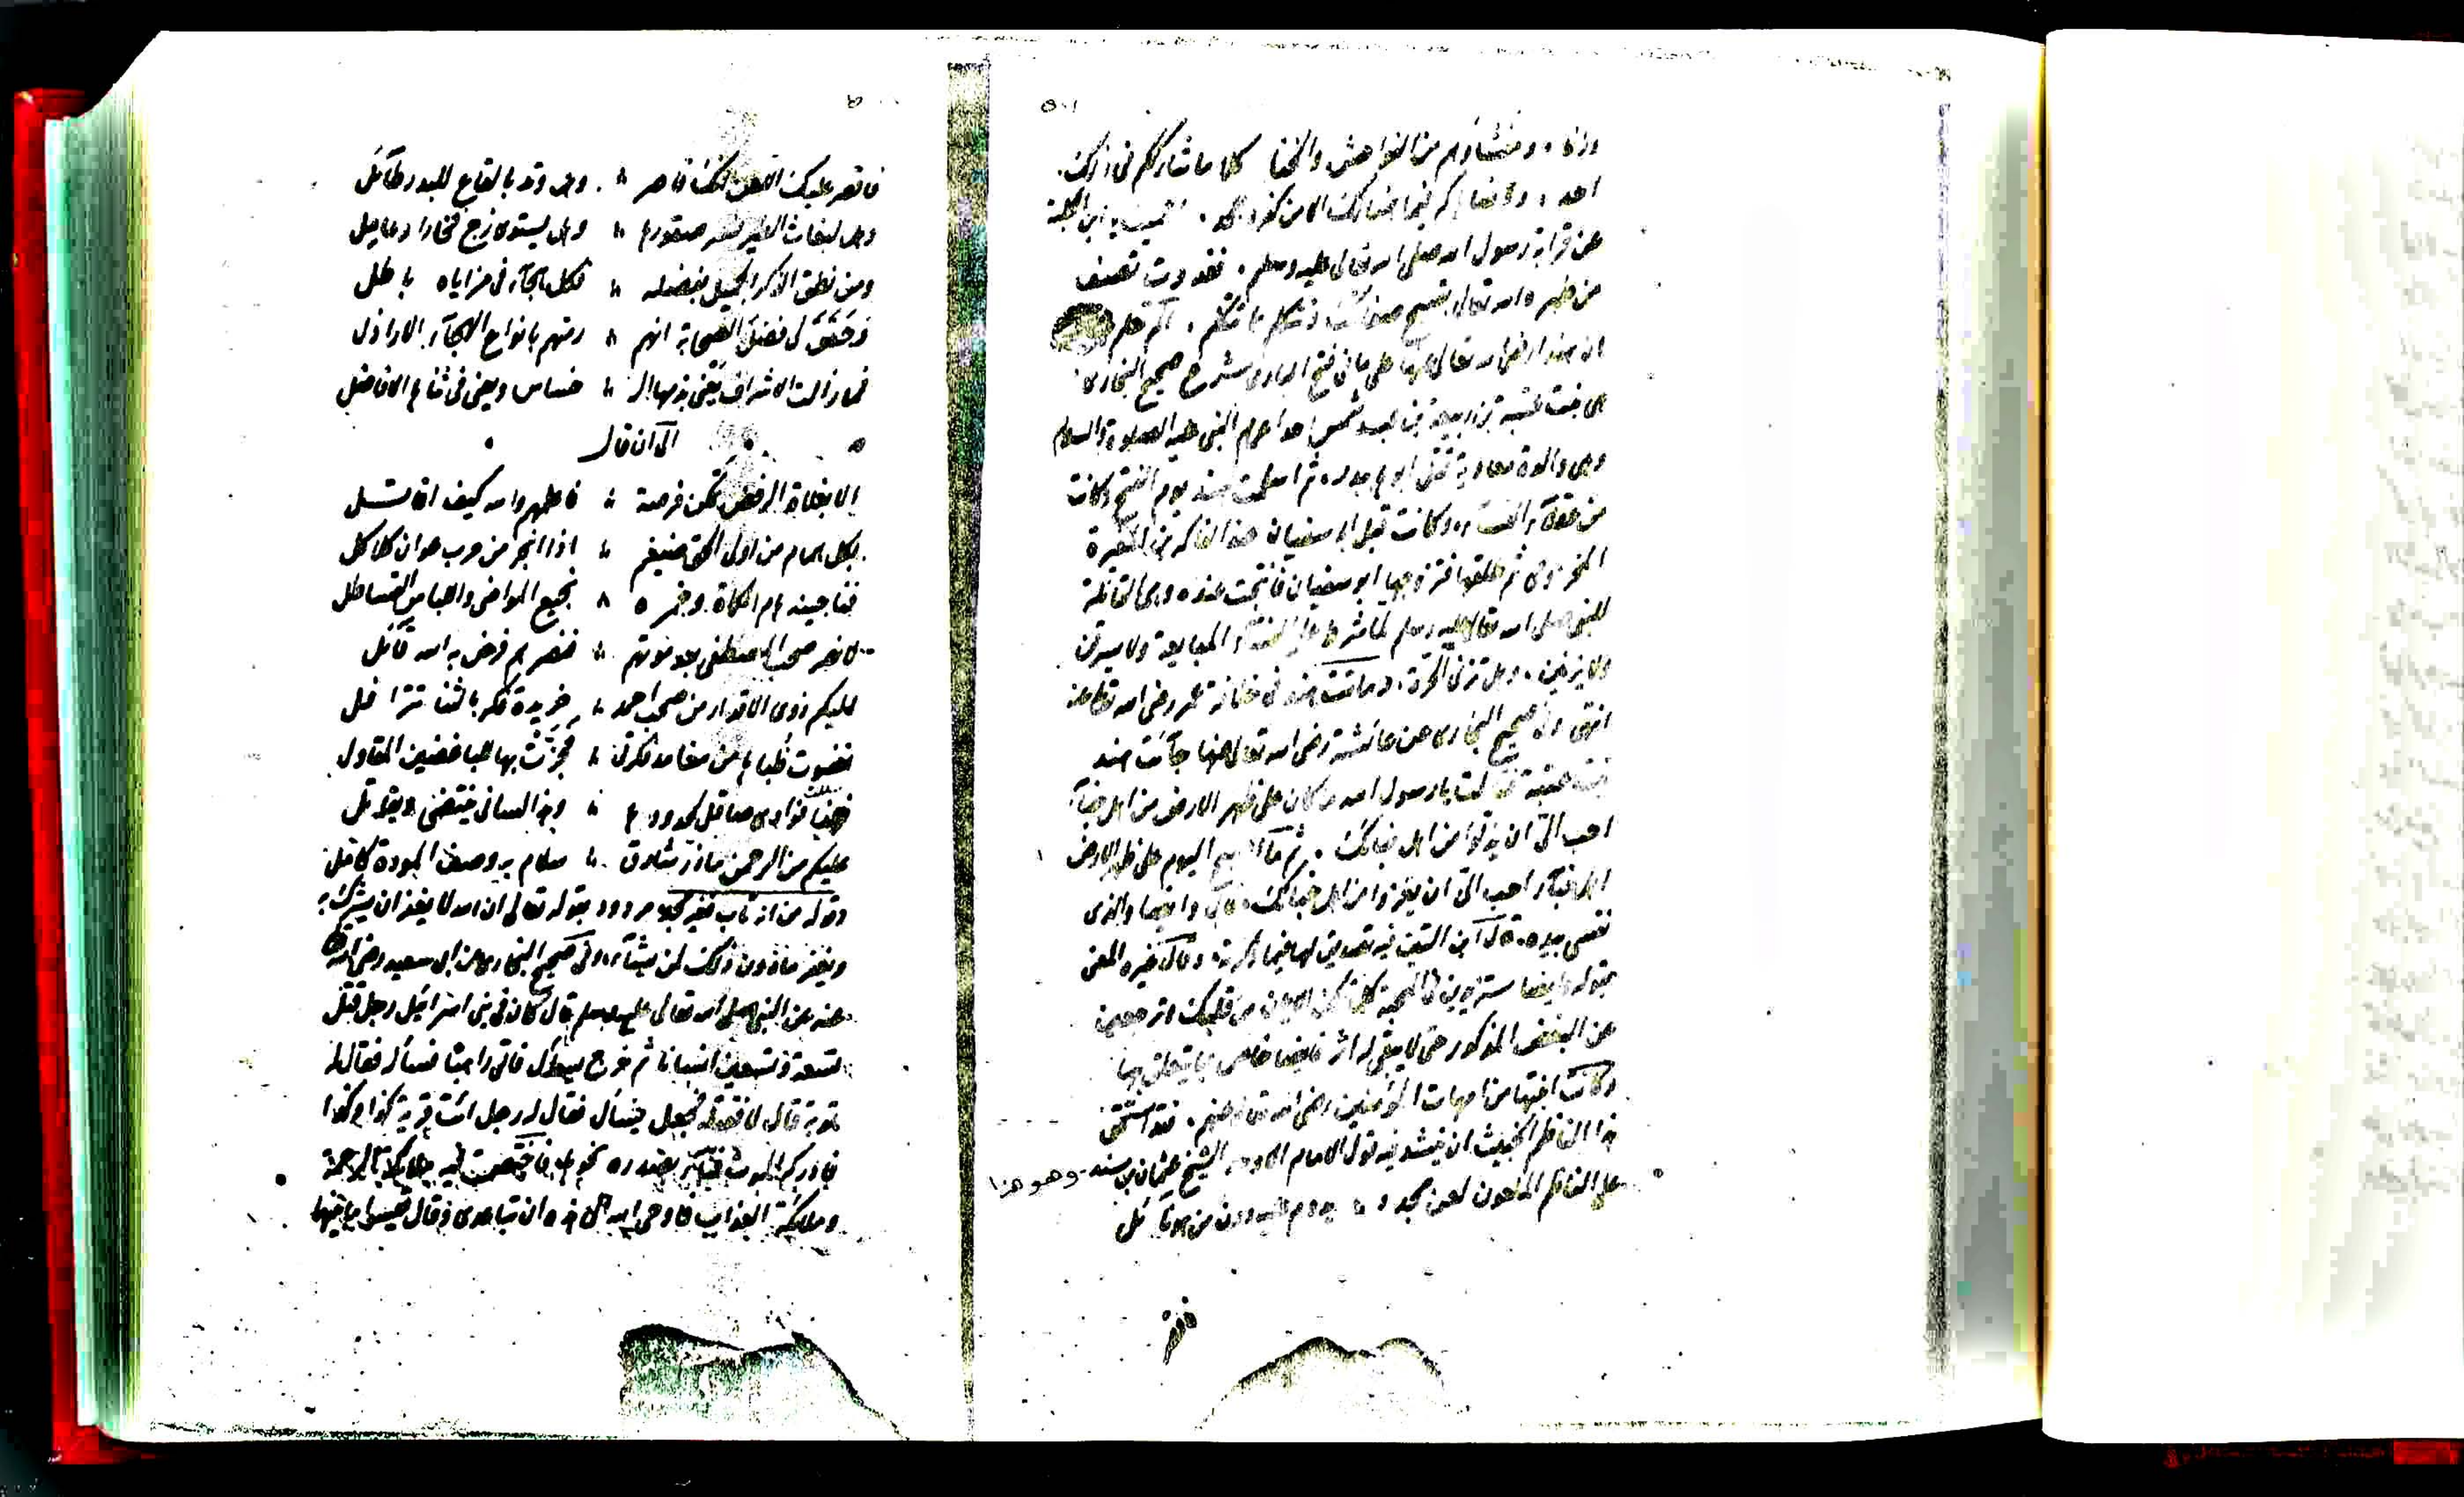 ٥٠١
وزنا، ومنشاؤهم من الفواحش والخنا كلا ما شارككم في ذلك
احد، ولا
عن قرابة رسول الله صلى الله تعالى عليه وسلم، فقد
من
ان هندا رضي الله تعالى عنها على ما في فتح الباري شرح صحيح البخاري
هي بنت عتبة بن ربيعة بن عبد شمس احد اعمام النبي عليه الصلوة والسلام
وهي والدة معاوية قتل ابوها ببدر، ثم اسلمت هند يوم الفتح وكانت
من عقلاء النساء، وكانت قبل ابي سفيان عند الفاكه بن المغيرة
المخزومي ثم طلقها فتزوجها ابو سفيان فانتجت عنده وهي القائلة
للنبي صلى الله تعالى عليه وسلم لما شرط على النساء المبايعة ولا يسرقن
ولا يزنين، وهل تزني الحرة، وماتت هند في خلافة عمر رضي الله تعالى عنه
انتهى وفي صحيح البخاري عن عائشة رضي الله تعالى عنها جآئت هند
بنت عتبة فقالت يا رسول الله ما كان على ظهر الارض من اهل خبآء
احب الي ان يذلوا من اهل خبائك، ثم ما اصبح اليوم على ظهر الارض
اهل خبآء احب الي ان يعزوا من اهل خبائك، قال وايضا والذي
نفسي بيده، قال ابن التين فيه تصديق لها فيما ذكرته، وقال غيره المعنى
بقوله وايضا ستزيدين في المحبة كلما تمكن الايمان من قلبك وترجعين
عن البغض المذكور حتى لا يبقى له اثر فايضا خاص بما يتعلق بها
وكانت اختها من امهات المؤمنين رضي الله تعالى عنهم، فقد استحق
هذا الناظم الخبيث ان ينشد فيه قول الامام الاوحد الشيخ عثمان بن سند وهو هذا
على الناظم الملعون لعن مجدد يدوم عليه دون من هو قائل
فاقصر
فاقصر عليك اللعن انك قاصر وهل وتد بالقاع للبدر طآئل
وهل لبغاث الطير صقورها وهل يستوي زج فخارا وعامل
ومن نطق الذكر الجميل بفضله فكل هجآء في مزاياه باطل
وحقق لي فضل الصحابة انهم رمتهم بانواع الهجآء الاراذل
فما زالت الاشراف يعنى بذمها ال خساس ويعنى في ثناها الافاضل
الى ان قال
الا بغلاة الرفض تمكن فرصة فاظهر والله كيف اقاتل
بكل همام من اولى الحق ضيغم اذا انجر من حرب عوان كلاكل
نجيع المواضي والعباس القساطل
لا نصر صحب المصطفى بعد موتهم فنصرهم فرض به الله قائل
اليكم ذوي الاقدار من صحب احمد خريدة فكر بالثنا تترافل
نضوت ظباها من مغامد فكرتي فجزت بها للباغضين المقاول
فهذا فؤادي صاقل لحدودها وهذا لساني ينتضي ويقاتل
عليكم من الرحمن ما ذر شارق سلام به وصف المودة كامل
وقوله من اذ تاب فغير مجد مردود بقوله تعالى ان الله لا يغفر ان يشرك به
ويغفر ما دون ذلك لمن يشآء، وفي صحيح البخاري عن ابي سعيد رضي الله
عنه عن النبي صلى الله تعالى عليه وسلم قال كان في بني اسرائيل رجل قتل
تسعة وتسعين انسانا ثم خرج يسأل فاتى راهبا فسأله فقال له
توبة قال لا فقتله فجعل يسأل فقال له رجل ائت قرية كذا وكذا
فادركه الموت فنآء بصدره نحوها فاختصمت فيه ملائكة الرحمة
وملائكة العذاب فاوحى الله الى هذه ان تباعدي وقال قيسوا ما بينهما